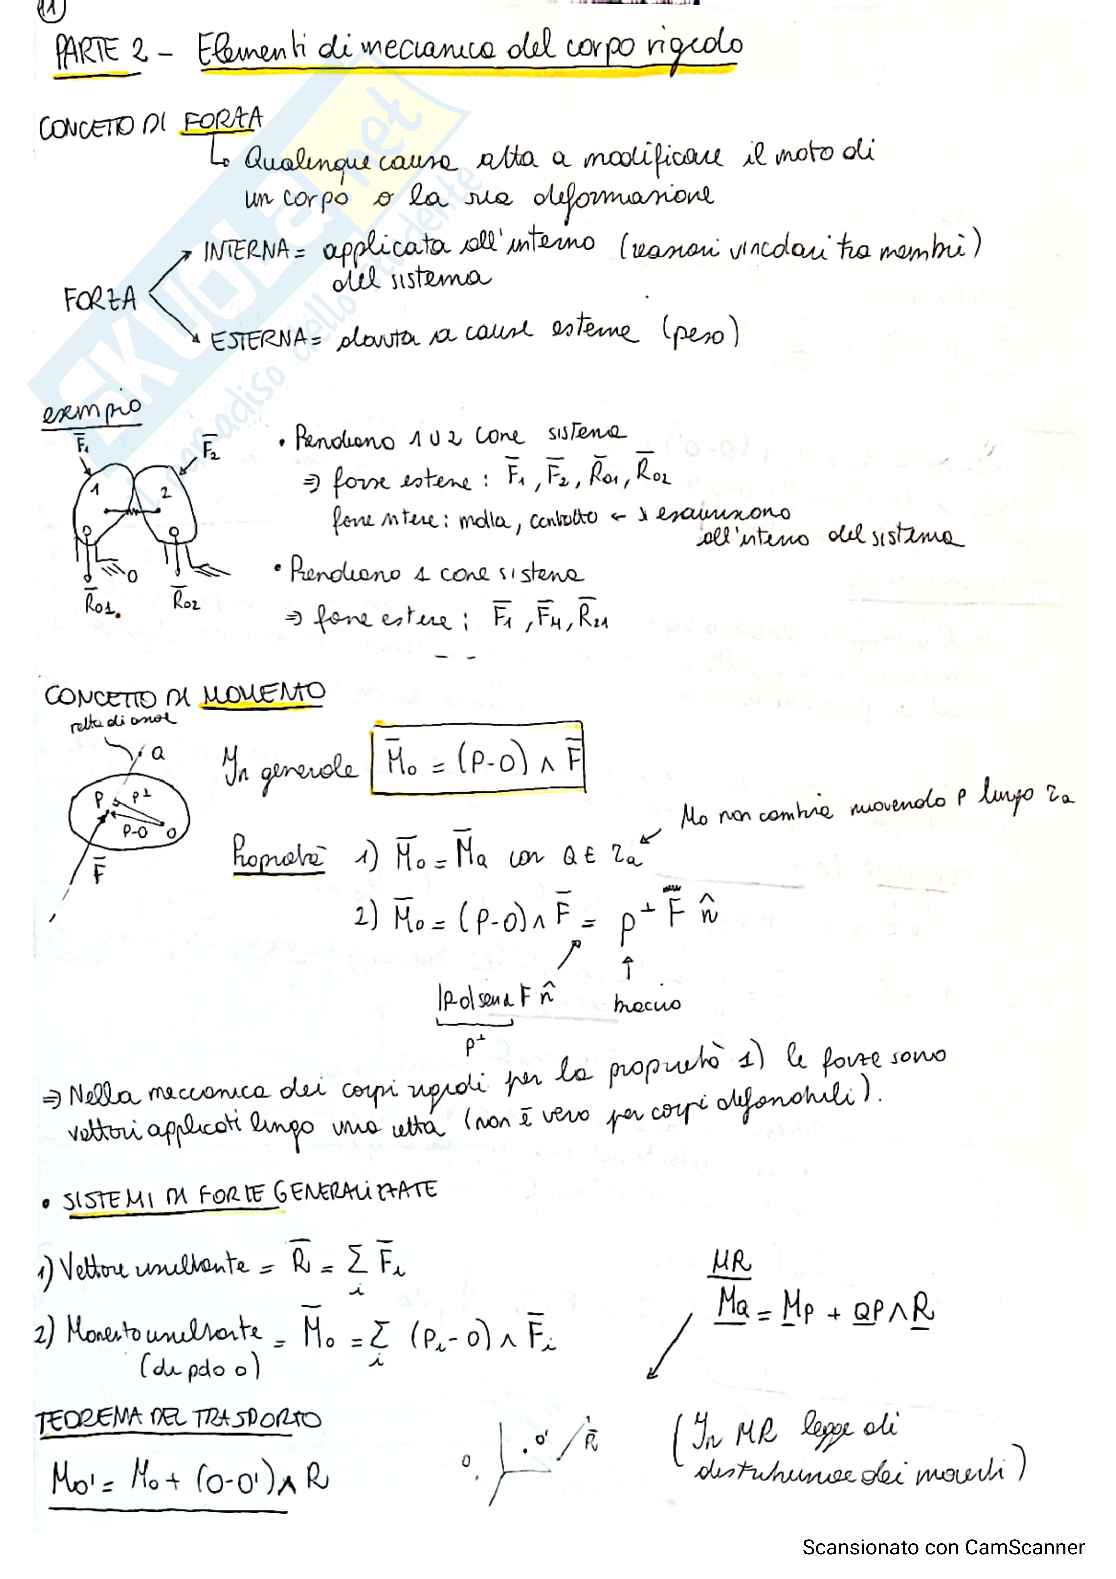 11
PARTE 2 - Elementi di meccanica del corpo rigido
CONCETTO DI FORZA
↳ Qualunque causa atta a modificare il moto di
un corpo o la sua deformazione
FORZA
INTERNA = applicata all'interno (reazioni vincolari tra membri)
del sistema
ESTERNA = dovuta a cause esterne (peso)
esempio
F̅₁ F̅₂
1 2
O
R̅₀₁. R̅₀₂
• Prendiamo 1 ∪ 2 come sistema
⇒ forze esterne: F̅₁, F̅₂, R̅₀₁, R̅₀₂
forze interne: molla, contatto ← si esauriscono
all'interno del sistema
• Prendiamo 1 come sistema
⇒ forze esterne: F̅₁, F̅M, R̅₂₁
CONCETTO DI MOMENTO
retta di azione
Q
P P⊥
P-O O
F̅
In generale M̅o = (P-O) ∧ F̅
Mo non cambia muovendo P lungo ra
Proprietà 1) M̅o = M̅Q con Q ∈ ra
2) M̅o = (P-O) ∧ F̅ = p⊥ F n̂
|PO| senα F n̂
braccio
p⊥
⇒ Nella meccanica dei corpi rigidi per la proprietà 1) le forze sono
vettori applicati lungo una retta (non è vero per corpi deformabili).
• SISTEMI DI FORZE GENERALIZZATE
1) Vettore risultante = R̅ = Σi F̅i
2) Momento risultante = M̅o = Σi (Pi-O) ∧ F̅i
(di polo O)
MR
MQ = MP + QP ∧ R
TEOREMA DEL TRASPORTO
Mo' = Mo + (O-O') ∧ R
O O' R̅
(In MR legge di
distribuzione dei momenti)
SKUOLA.net
il paradiso dello studente
Scansionato con CamScanner